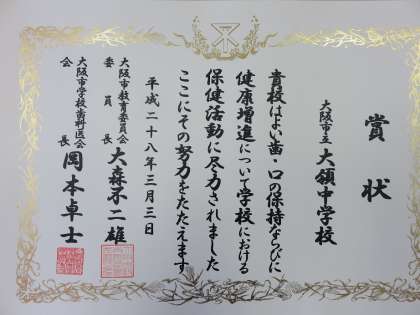 賞状
大阪市立 大領中学校
貴校はよい歯・口の保持ならびに
健康増進について学校における
保健活動に尽力されました
ここにその努力をたたえます
平成二十八年三月三日
大阪市教育委員会
委員長 大森不二雄
大阪市学校歯科医会
会長 岡本卓士